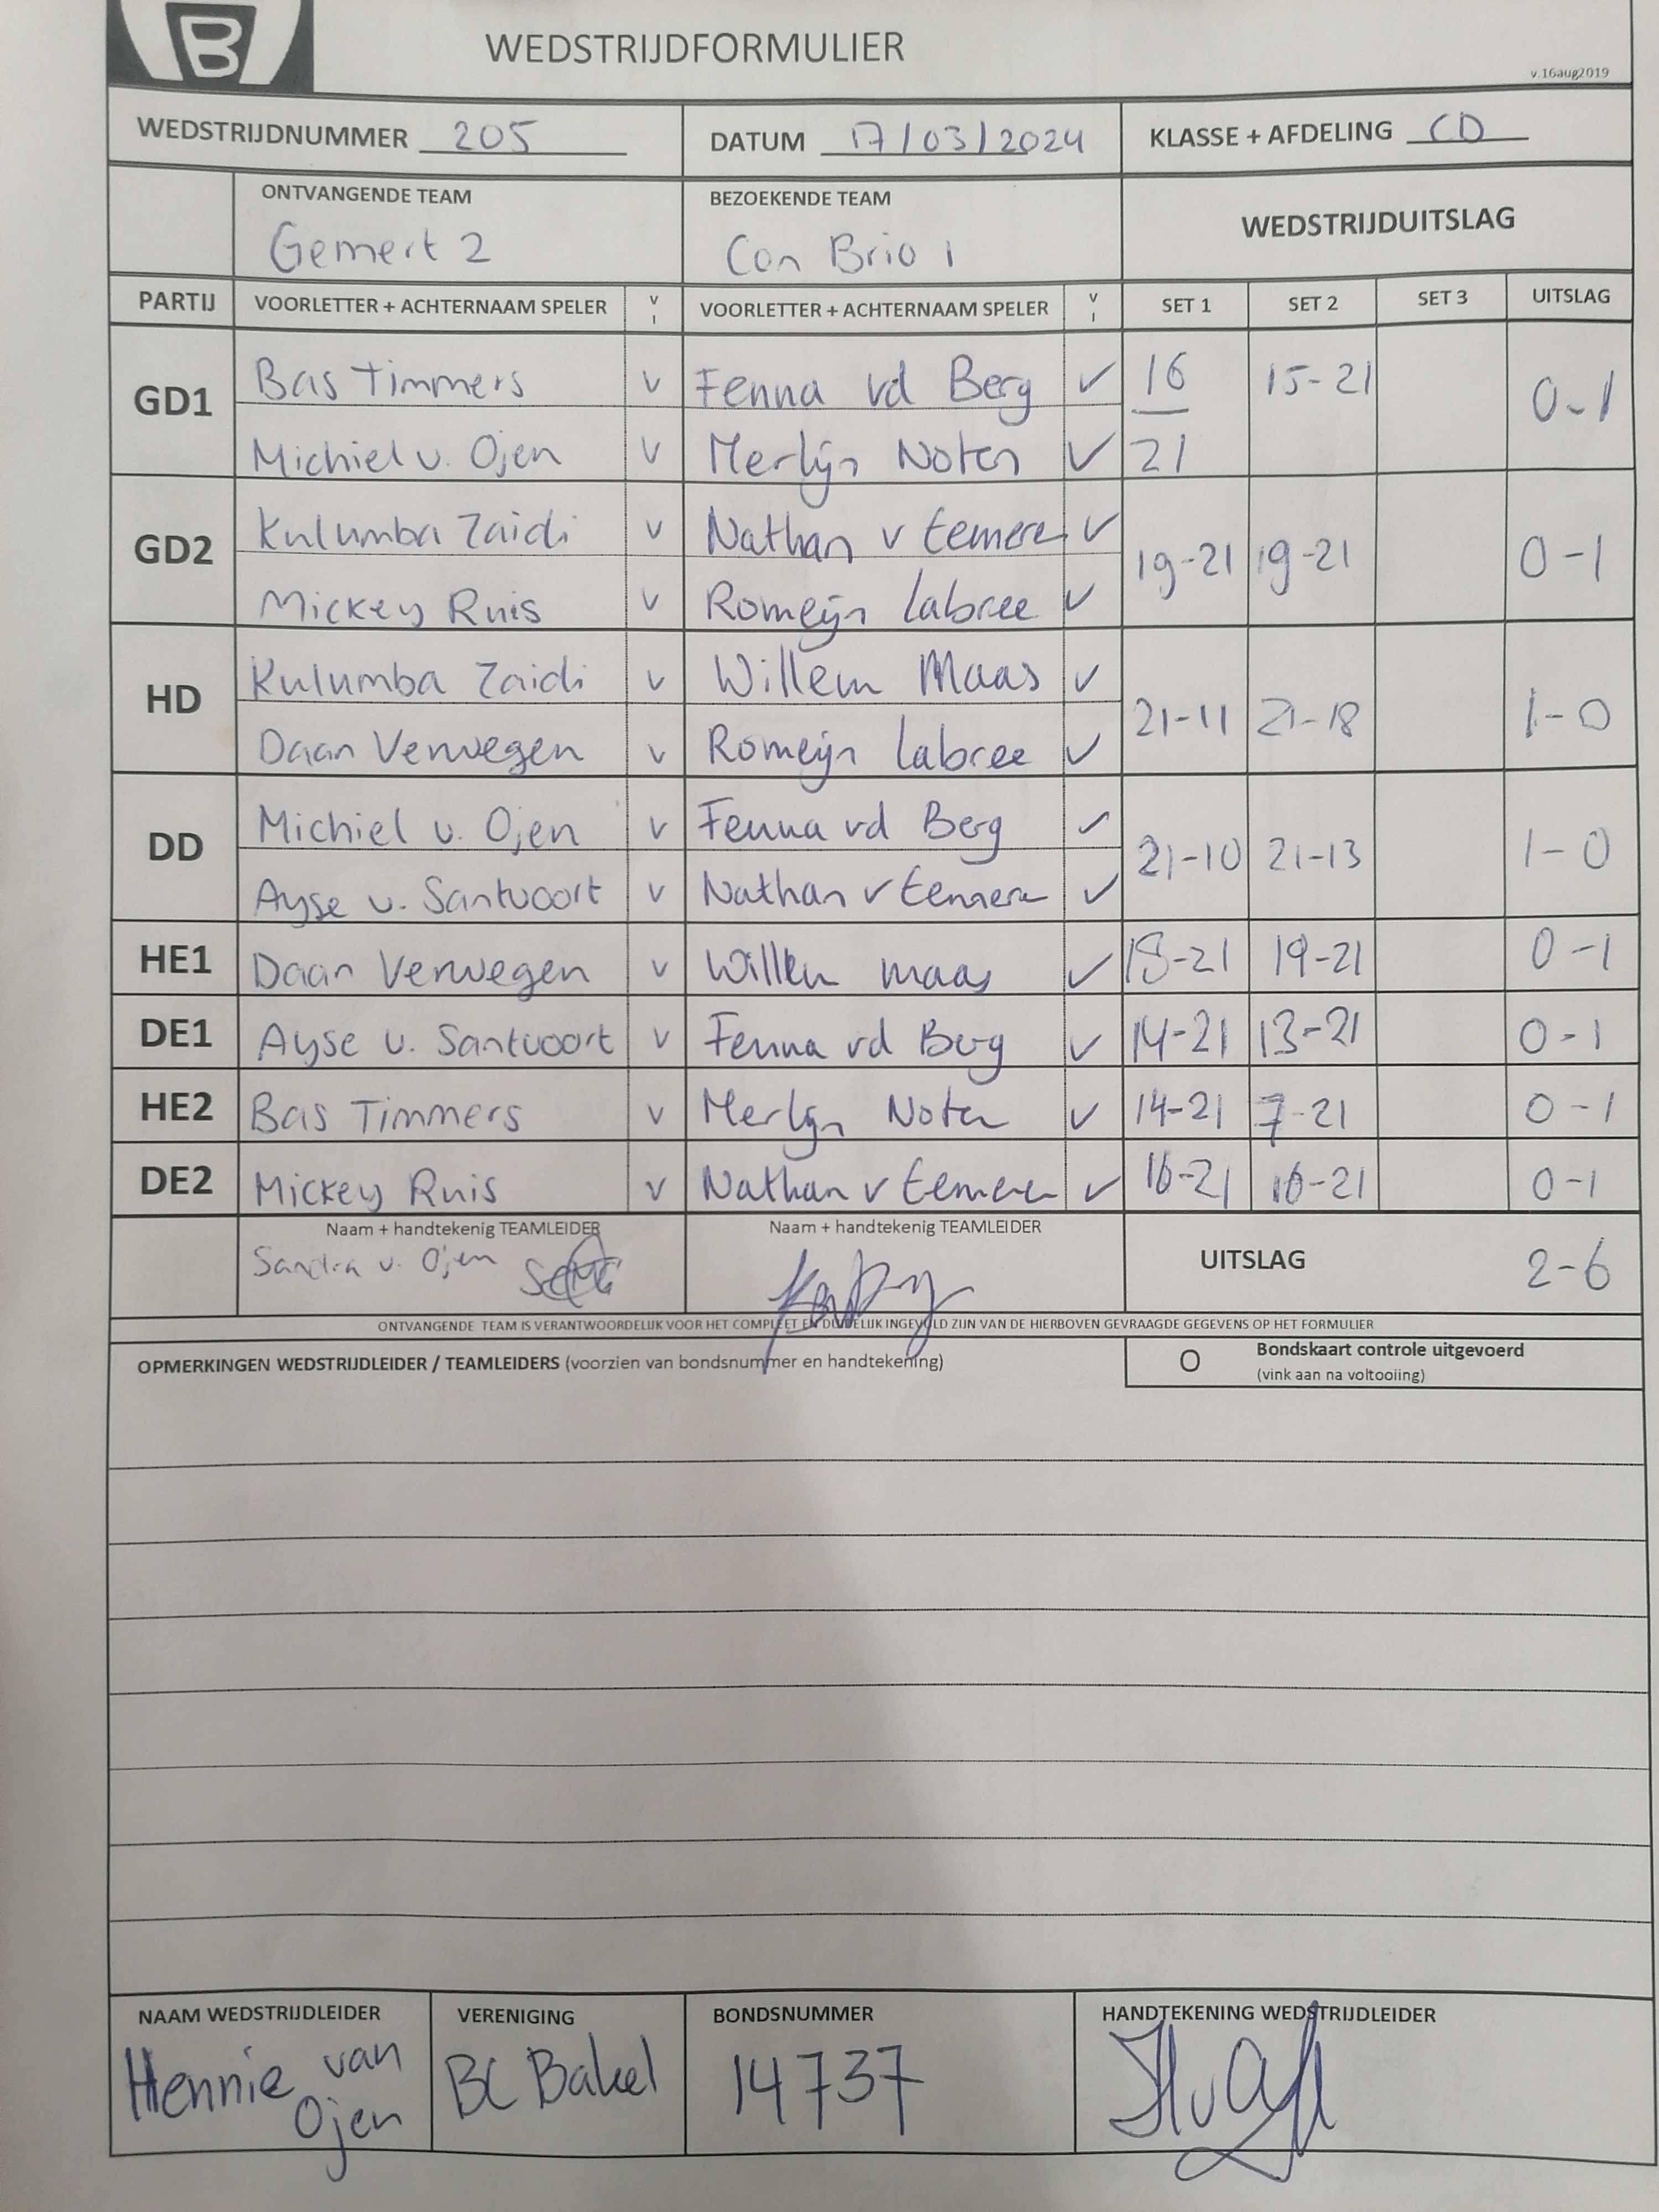 B
WEDSTRIJDFORMULIER
v.16aug2019
WEDSTRIJDNUMMER 205 DATUM 17/03/2024 KLASSE + AFDELING CD
ONTVANGENDE TEAM BEZOEKENDE TEAM WEDSTRIJDUITSLAG
Gemert 2 Con Brio 1
PARTIJ VOORLETTER + ACHTERNAAM SPELER V I VOORLETTER + ACHTERNAAM SPELER V I SET 1 SET 2 SET 3 UITSLAG
GD1 Bas Timmers v Fenna vd Berg ✓ 16 15-21 0-1
Michiel v. Ojen v Merlijn Noten ✓ 21
GD2 Kulumba Zaidi v Nathan v Eemeren ✓ 19-21 19-21 0-1
Mickey Ruis v Romeijn Labree ✓
HD Kulumba Zaidi v Willem Maas ✓ 21-11 21-18 1-0
Daan Verwegen v Romeijn Labree ✓
DD Michiel v. Ojen v Fenna vd Berg ✓ 21-10 21-13 1-0
Ayse v. Santvoort v Nathan v Eemeren ✓
HE1 Daan Verwegen v Willem Maas ✓ 18-21 19-21 0-1
DE1 Ayse v. Santvoort v Fenna vd Berg ✓ 14-21 13-21 0-1
HE2 Bas Timmers v Merlijn Noten ✓ 14-21 7-21 0-1
DE2 Mickey Ruis v Nathan v Eemeren ✓ 16-21 16-21 0-1
Naam + handtekenig TEAMLEIDER Naam + handtekenig TEAMLEIDER UITSLAG 2-6
Sandra v. Ojen
ONTVANGENDE TEAM IS VERANTWOORDELIJK VOOR HET COMPLEET EN DUIDELIJK INGEVULD ZIJN VAN DE HIERBOVEN GEVRAAGDE GEGEVENS OP HET FORMULIER
OPMERKINGEN WEDSTRIJDLEIDER / TEAMLEIDERS (voorzien van bondsnummer en handtekening) O Bondskaart controle uitgevoerd
(vink aan na voltooiing)
NAAM WEDSTRIJDLEIDER VERENIGING BONDSNUMMER HANDTEKENING WEDSTRIJDLEIDER
Hennie van Ojen BC Bakel 14737